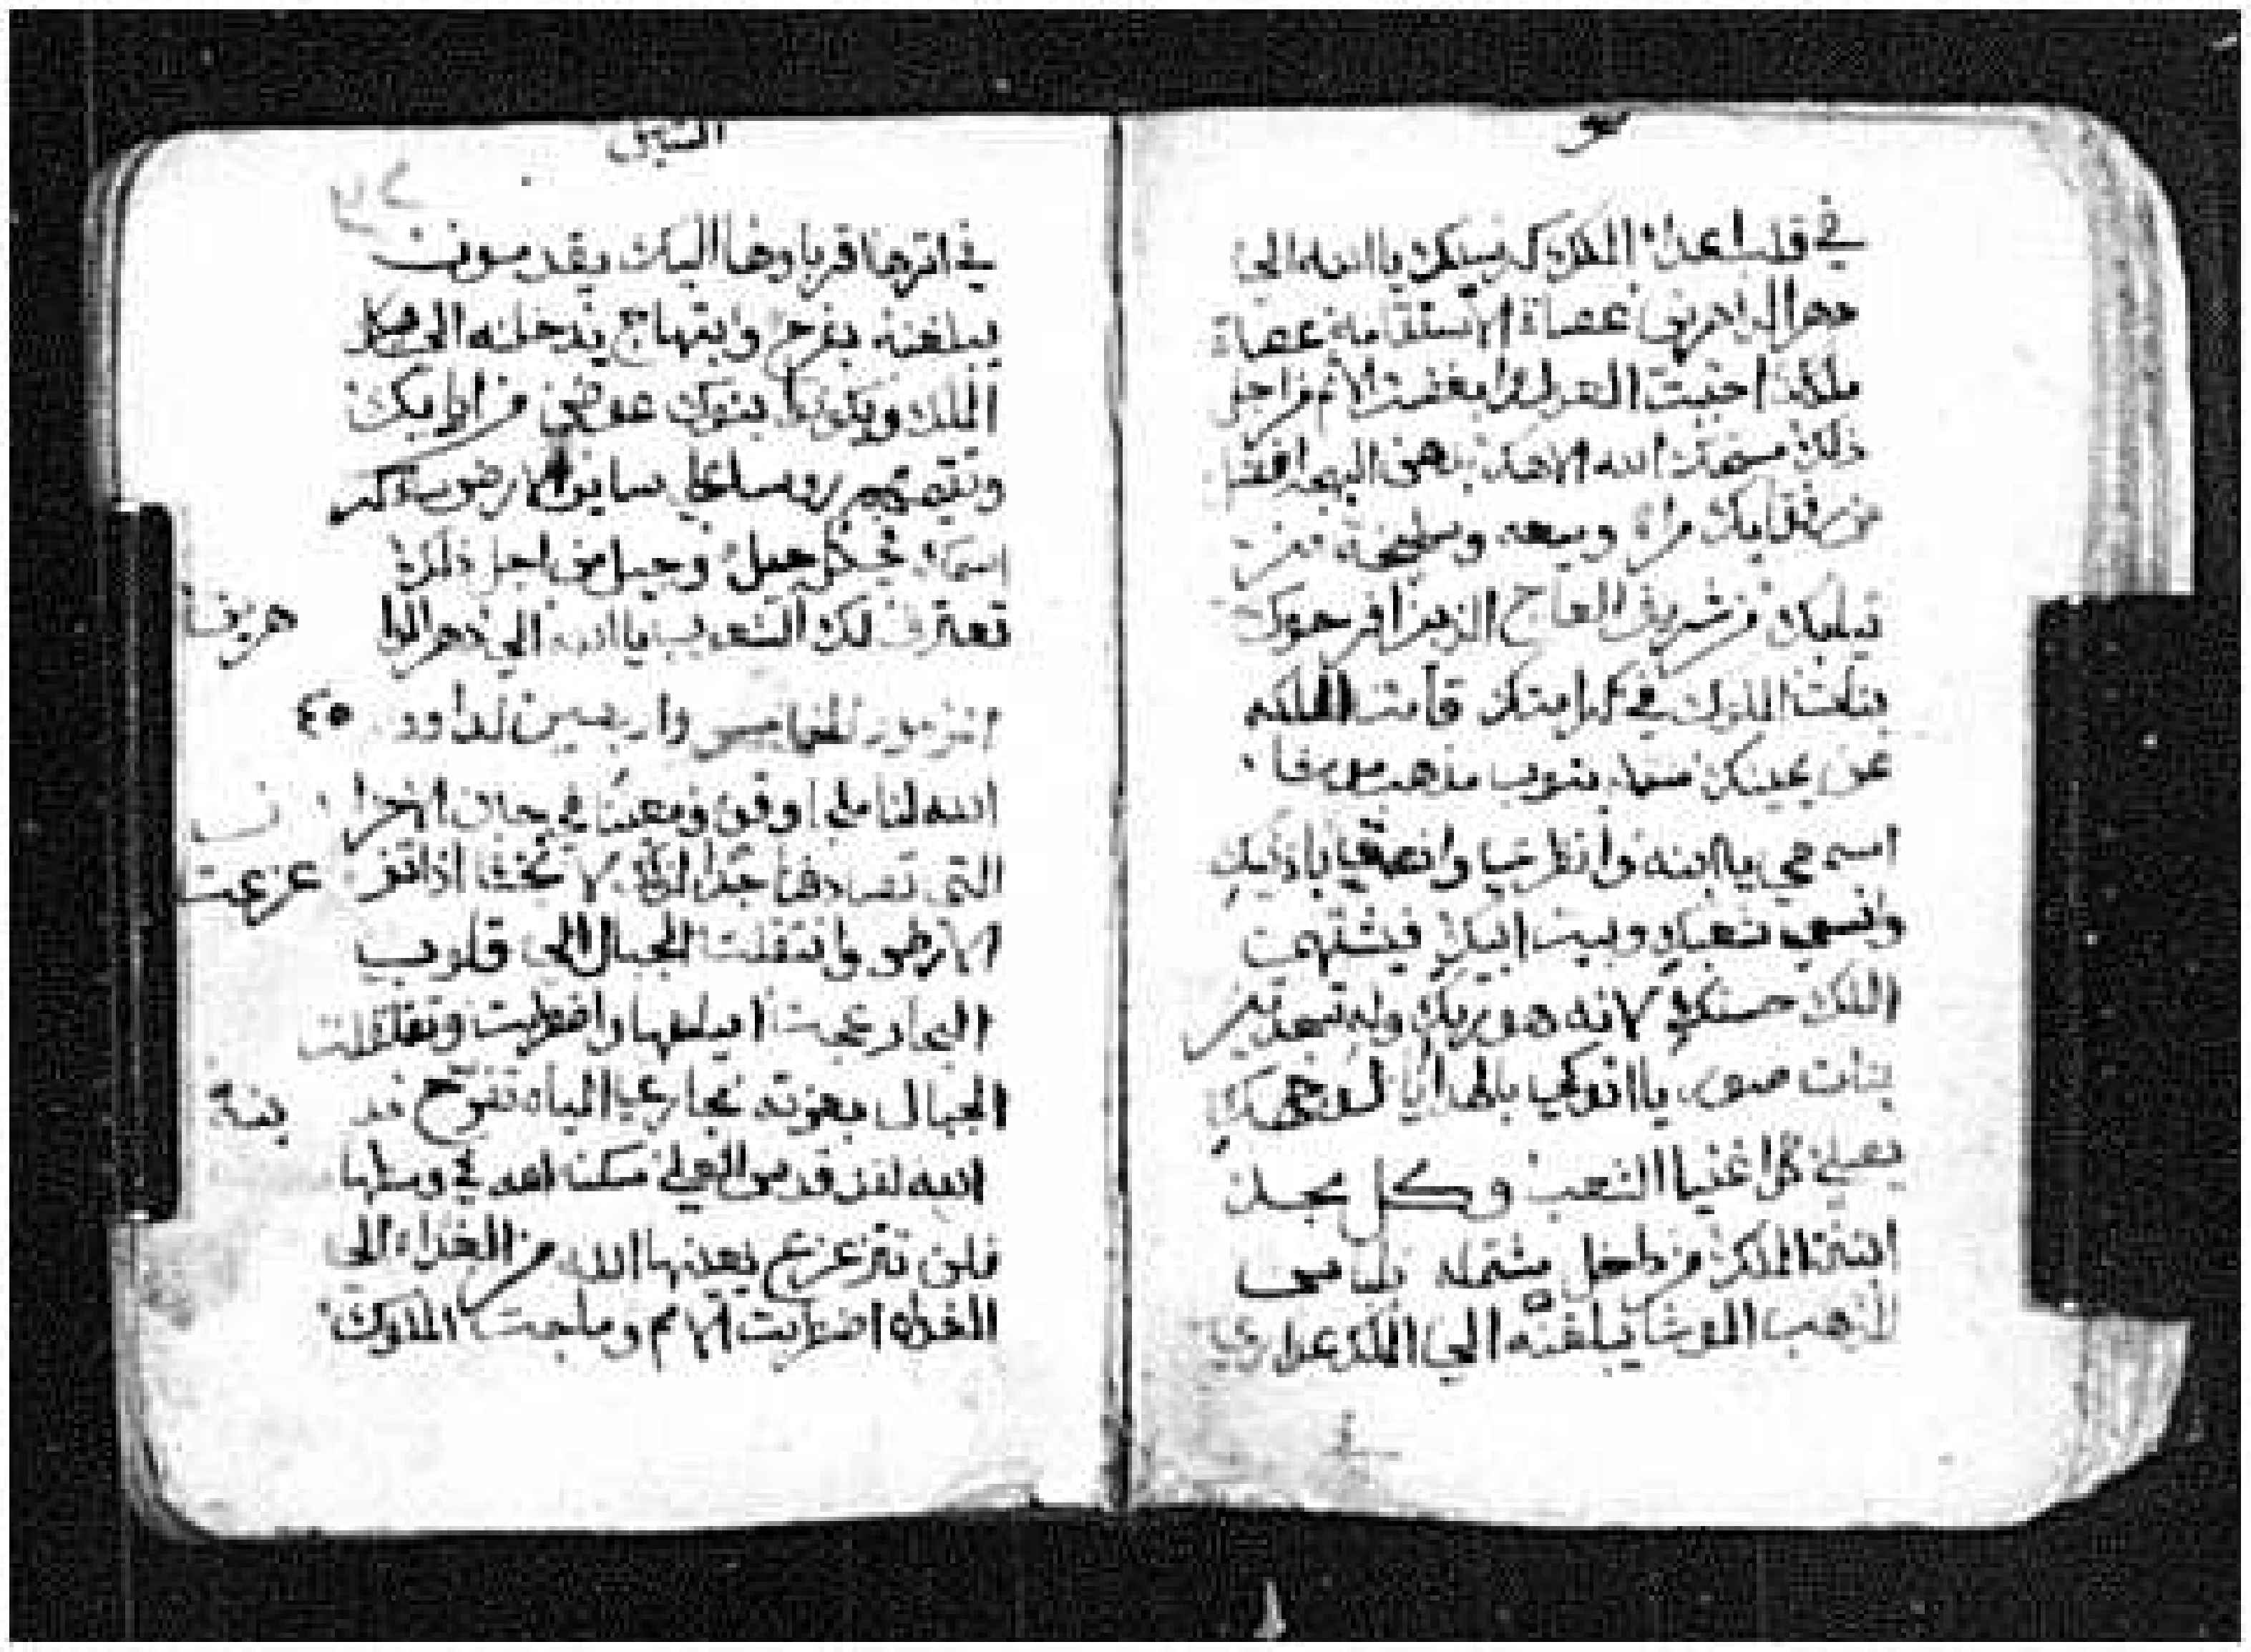 في قلب اعداء الملك كرسيك يا الله الى
دهر الداهرين عصاة الاستقامة عصاة
ملكك احببت العدل وابغضت الاثم من اجل
ذلك مسحك الله الاهك بدهن البهجة افضل
من رفقايك مر وميعه وسليخه من
تيابك من شريف العاج الذين افرحوك
بنات الملوك في كرامتك قامت الملكه
عن يمينك مشتمله بتوب مذهب موشا
اسمعي يا ابنه وانظري وانصتي باذنيك
وانسي شعبك وبيت ابيك فيشتهي
الملك حسنك لانه هو ربك وله تسجدين
بنات صور ياتوك بالهدايا لوجهك
يصلي كل اغنيا الشعب وكل مجد
ابنة الملك من داخل مشتمله بلباس
الذهب الموشا يبلغنه الى الملك عذارى
الستين
في اثرها قرباوها اليك يقدمون
يبلغنه بفرح وابتهاج يدخلنه الى هيكل
الملك ويكون بنوك عوض من ابايك
وتقيمهم روسا على ساير الارض ويذكر
اسمك في كل جيل وجيل من اجل ذلك
تعترف لك الشعوب يا الله الى دهر الدا
هرين
المزمور الخامس واربعين لداوود ٤٥
الله لنا ملجا وقوة ومعينا في حال الاحزان
التي تصادفنا جدا لذلك لا نخشا اذا تز
عزعت
الارض وانتقلت الجبال الى قلوب
البحار عجت امياهها واضطربت وتقلقلت
الجبال بعزته مجاري المياه تفرح مد
ينة
الله لقد قدس العلي مسكنه الله في وسطها
فلن تتزعزع يعينها الله من الغداه الى
الغداه اضطربت الامم وماجت الملوك